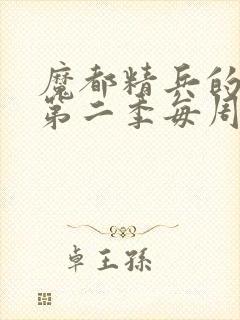 魔都精兵的
第二季每周
卓王孙